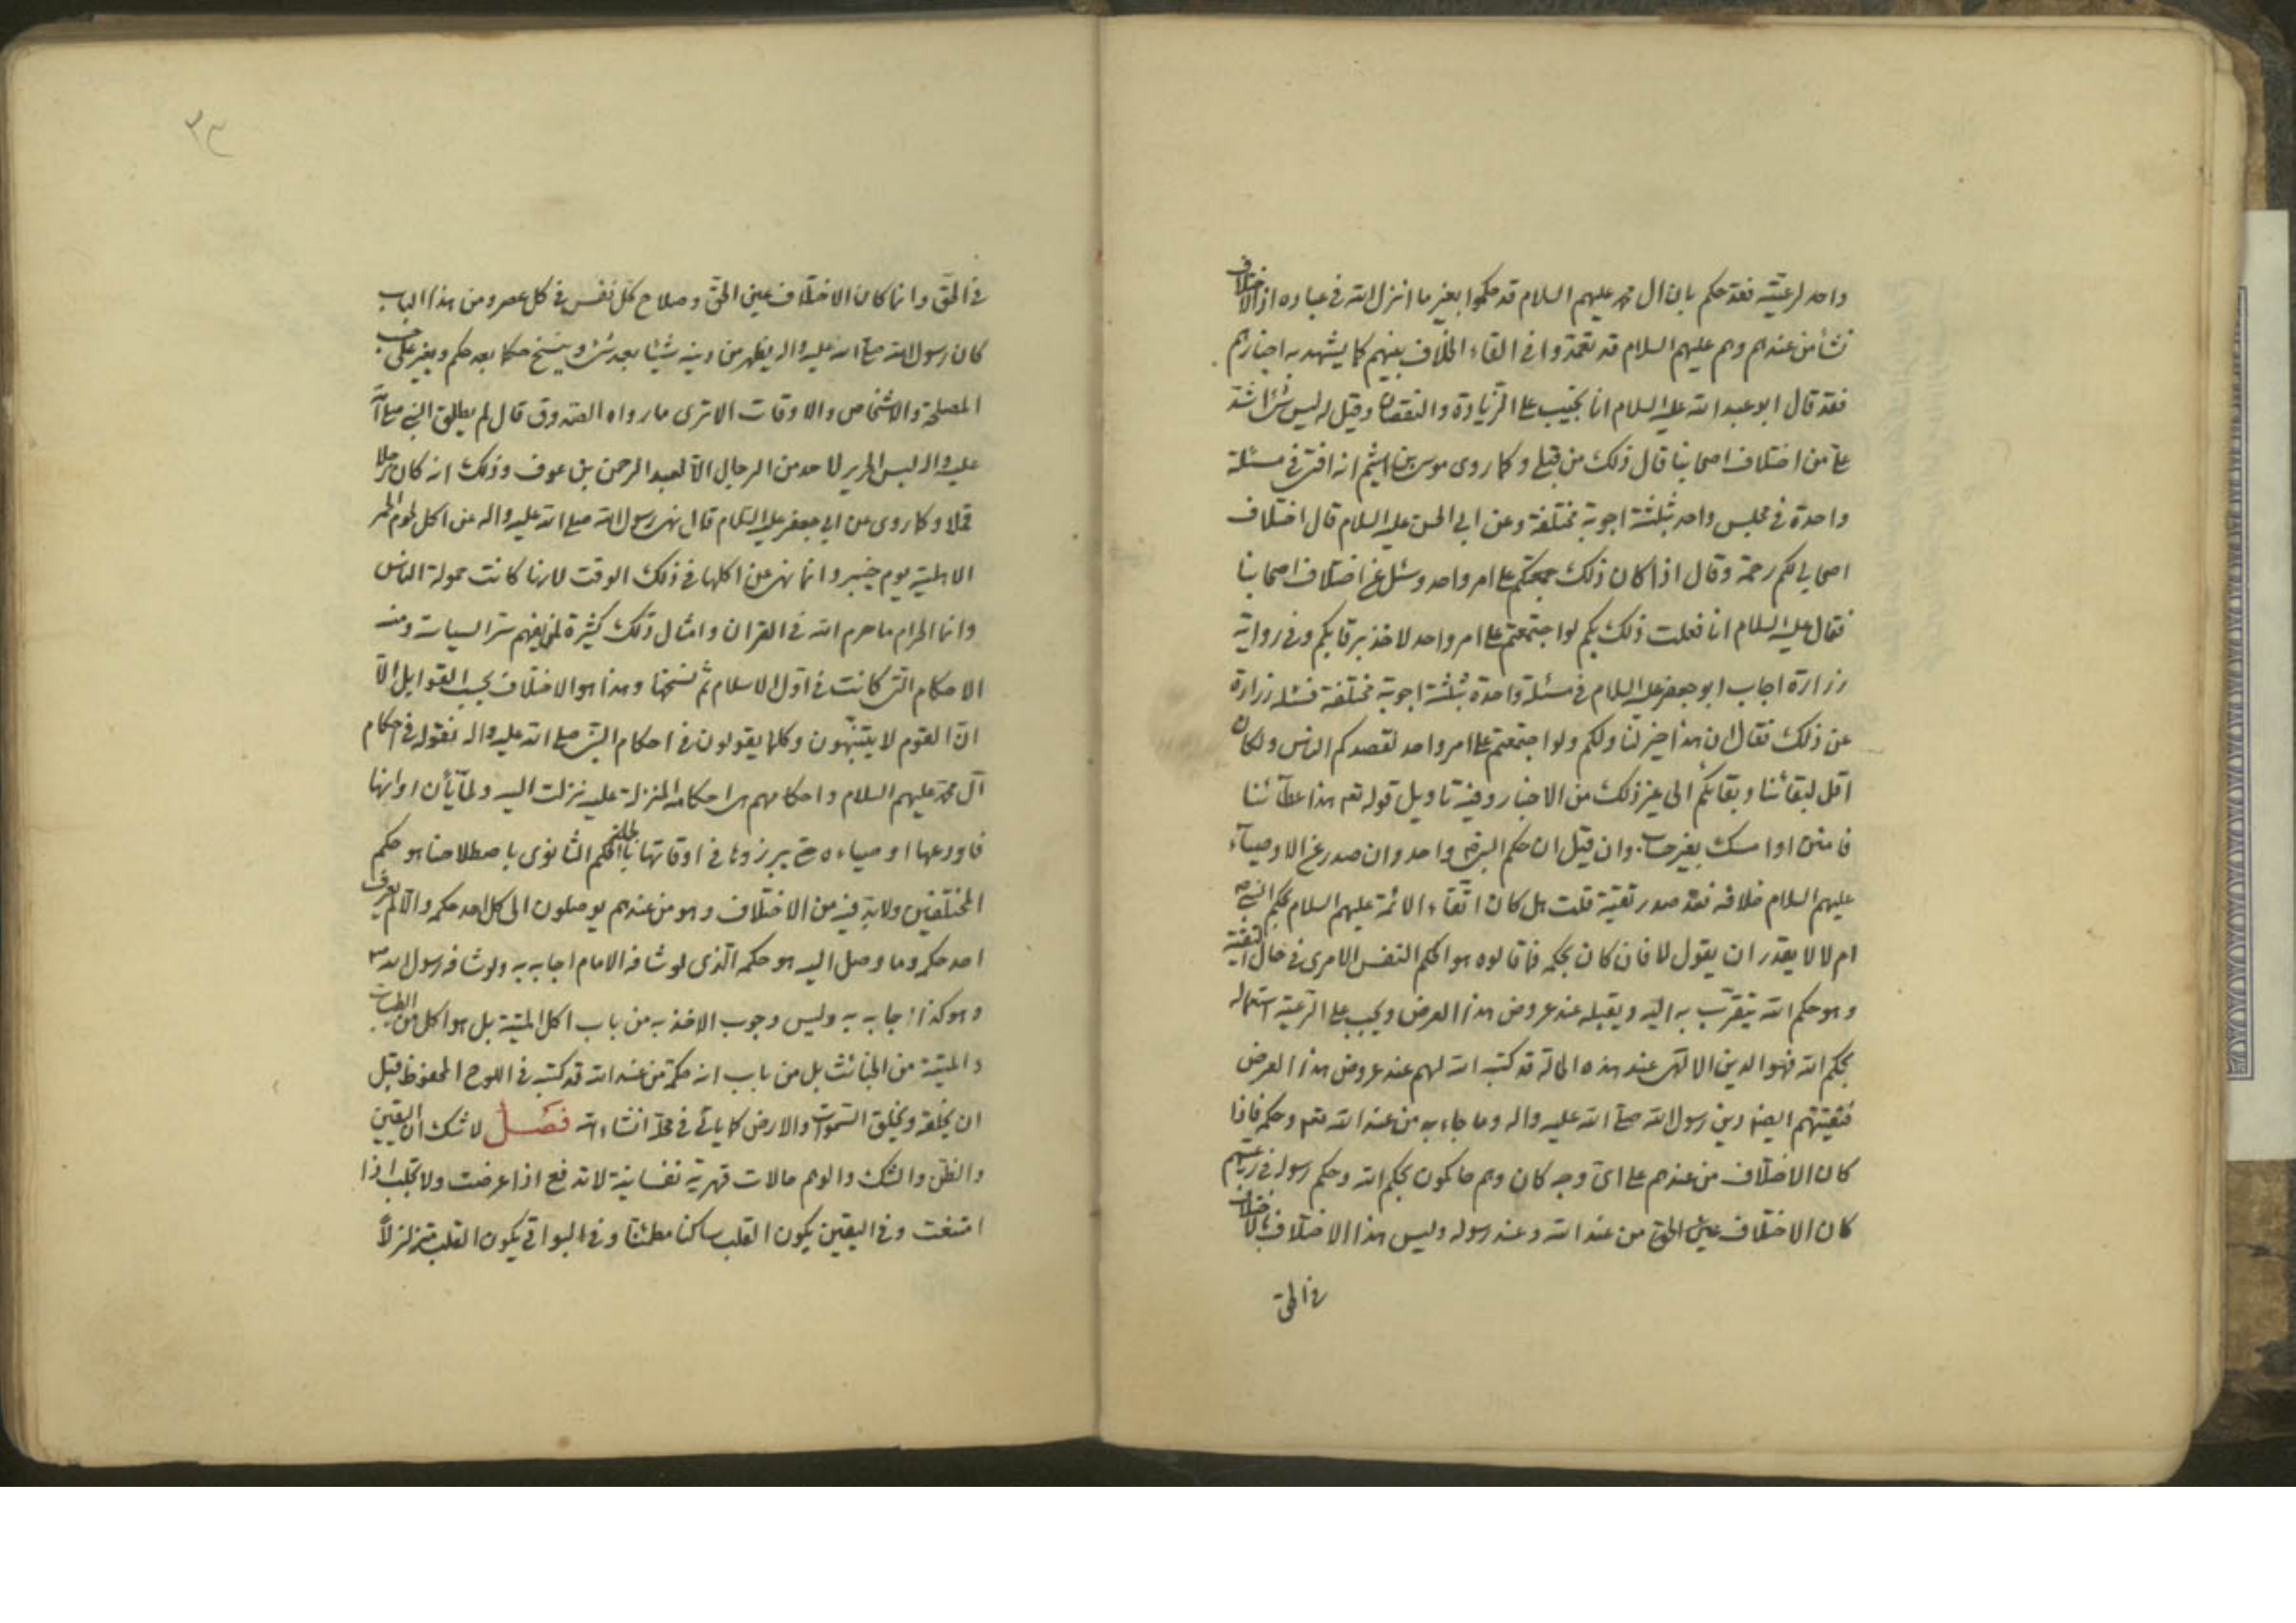 واحد لرعيته فقد حكم بان ال محمد عليهم السلام قد حكموا بغير ما انزل الله في عباده اذ الاختلاف
نشأ من عندهم وهم عليهم السلام قد تعمدوا في القاء الخلاف بينهم كما يشهد به اخبارهم
فقد قال ابو عبد الله عليه السلام انا نجيب على الزيادة والنقصان وقيل له ليس شئ اشد
على من اختلاف اصحابنا قال ذلك من قبلي وكما روى موسى بن اشيم انه افتى في مسئلة
واحدة في مجلس واحد بثلثة اجوبة مختلفة وعن ابي الحسن عليه السلام قال اختلاف
اصحابي لكم رحمة وقال اذا كان ذلك جمعتكم على امر واحد وسئل عن اختلاف اصحابنا
فقال عليه السلام انا فعلت ذلك بكم لو اجتمعتم على امر واحد لاخذ برقابكم وفي رواية
زرارة اجاب ابو جعفر عليه السلام في مسئلة واحدة بثلثة اجوبة مختلفة فسئله زرارة
عن ذلك فقال ان هذا خير لنا ولكم ولو اجتمعتم على امر واحد لقصدكم الناس ولكان
اقل لبقائنا وبقائكم الى غير ذلك من الاخبار وفيه تاويل قوله تعم هذا عطآئنا
فامنن او امسك بغير حساب وان قيل ان حكم النبي واحد وان صدر عن الاوصيآء
عليهم السلام خلافه فقد صدر تقية قلت هل كان اتقآء الائمة عليهم السلام بحكم النبي ص
ام لا لا يقدر ان يقول لا فان كان بحكمه فما قالوه هو الحكم النفس الامرى في حال التقية
وهو حكم الله يتقرب به اليه ويقبله عند عروض هذا العرض ويجب على الرعية استعماله
بحكم الله فهو الدين الالهى عند هذه الحالة قد كتبه الله لهم عند عروض هذا العرض
فتقيتهم ايضا دين رسول الله صلى الله عليه واله وما جاء به من عند الله تعم وحكمه فاذا
كان الاختلاف من عندهم على اى وجه كان وهم حاكمون بحكم الله وحكم رسوله في رعيتهم
كان الاختلاف عين الحق من عند الله وعند رسوله وليس هذا الاختلاف باختلاف
في الحق
٢٣
في الحق وانما كان الاختلاف عين الحق وصلاح كل نفس في كل عصر ومن هذا الباب
كان رسول الله صلى الله عليه واله يظهر من دينه شيئا بعد شئ وينسخ حكما بعد حكم ويغير على حسب
المصلحة والاشخاص والاوقات الا ترى ما رواه الصدوق قال لم يطلق النبي صلى الله
عليه واله لبس الحرير لاحد من الرجال الا لعبد الرحمن بن عوف وذلك انه كان رجلا
قملا وكما روى عن ابي جعفر عليه السلام قال نهى رسول الله صلى الله عليه واله عن اكل لحوم الحمر
الاهلية يوم خيبر وانما نهى عن اكلها في ذلك الوقت لانها كانت حمولة الناس
وانما الحرام ما حرم الله في القران وامثال ذلك كثيرة لمن يفهم سر السياسات ومنه
الاحكام التى كانت في اول الاسلام ثم نسخها وهذا هو الاختلاف بحسب القوابل الا
ان القوم لا يتنبهون وكلما يقولون في احكام النبي صلى الله عليه واله نقوله في احكام
آل محمد عليهم السلام واحكامهم هى احكامه المنزلة عليه نزلت اليه ولما يأن اوانها
فاودعها اوصياءه حتى يبرزوها في اوقاتها بالجملة فالحكم الثانوى باصطلاحنا هو حكم
المختلفين ولا بد فيه من الاختلاف وهو من عندهم يوصلون الى كل احد حكمه والا لم يعرف
احد حكمه وما وصل اليه هو حكمه الذى لو شافه الامام اجابه به ولو شافه رسول الله ص
وهو كذا اجابه به وليس وجوب الاخذ به من باب اكل الميتة بل هو اكل من الطيبات
والميتة من الخبائث بل من باب انه حكمة من عند الله قد كتبه في اللوح المحفوظ قبل
ان يخلقه ويخلق السموات والارض كما ياتى في محله انشاء الله فصل لا شك ان اليقين
والظن والشك والوهم حالات قهرية نفسانية لا تدفع اذا عرضت ولا تجلب اذا
امتنعت وفي اليقين يكون القلب ساكنا مطمئنا وفي البواقي يكون القلب متزلزلا